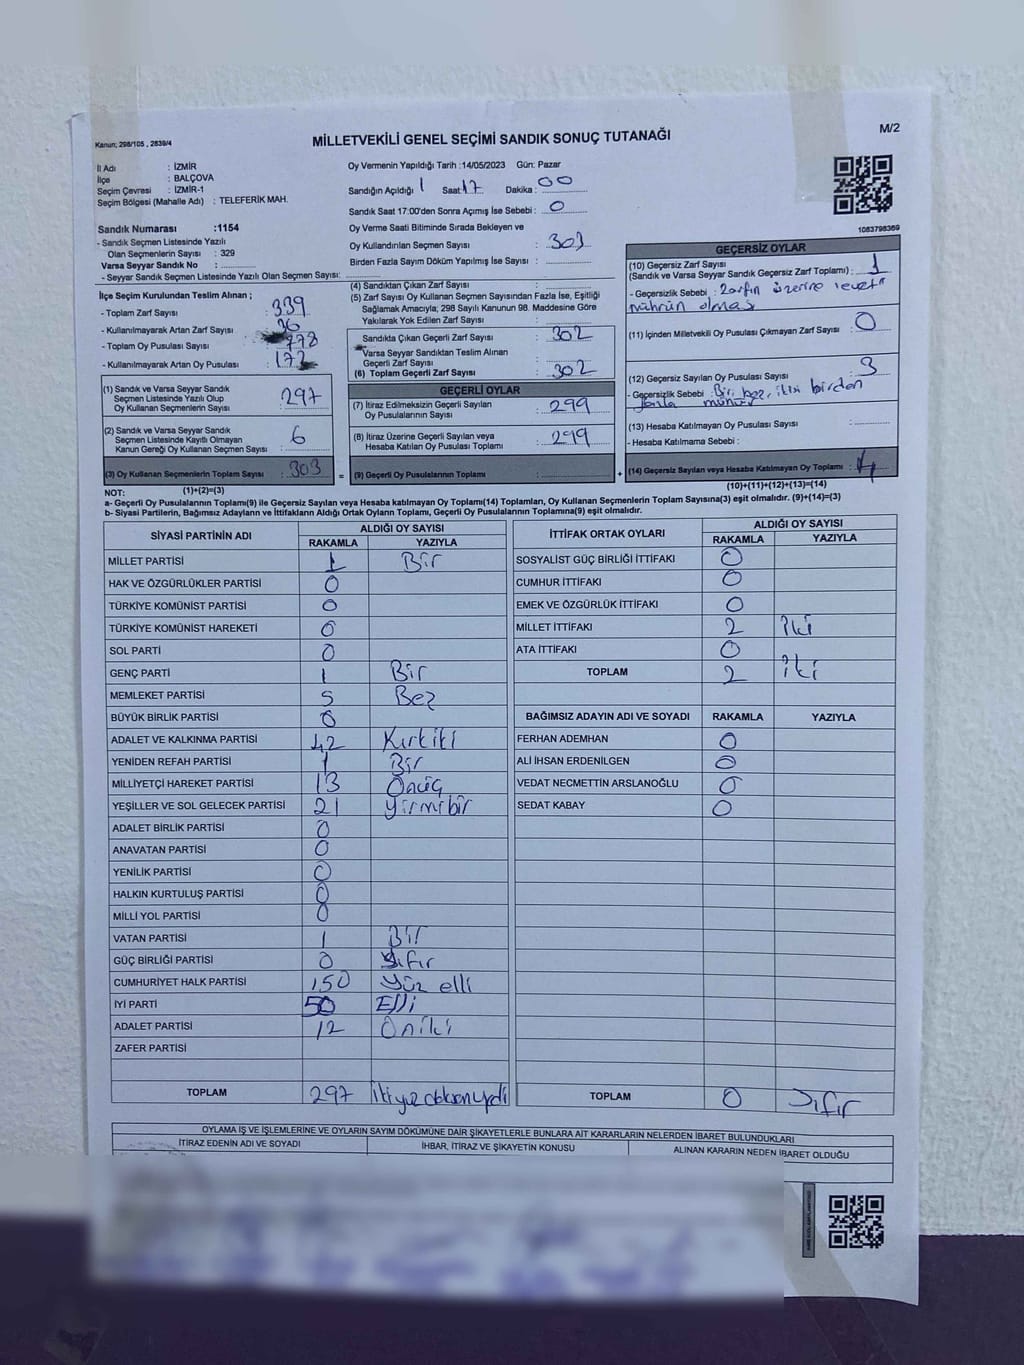 Kanun; 298/105 , 2839/4
MİLLETVEKİLİ GENEL SEÇİMİ SANDIK SONUÇ TUTANAĞI
M/2
İl Adı : İZMİR
İlçe : BALÇOVA
Seçim Çevresi : İZMİR-1
Seçim Bölgesi (Mahalle Adı) : TELEFERİK MAH.
Sandık Numarası :1154
- Sandık Seçmen Listesinde Yazılı
Olan Seçmenlerin Sayısı : 329
Varsa Seyyar Sandık No :
- Seyyar Sandık Seçmen Listesinde Yazılı Olan Seçmen Sayısı:
Oy Vermenin Yapıldığı Tarih :14/05/2023 Gün: Pazar
Sandığın Açıldığı Saat 17 Dakika : 00
Sandık Saat 17:00'den Sonra Açmış İse Sebebi : 0
Oy Verme Saati Bitiminde Sırada Bekleyen ve
Oy Kullandırılan Seçmen Sayısı : 303
Birden Fazla Sayım Döküm Yapılmış İse Sayısı :
1083798369
İlçe Seçim Kurulundan Teslim Alınan ;
- Toplam Zarf Sayısı : 339
- Kullanılmayarak Artan Zarf Sayısı : 36
- Toplam Oy Pusulası Sayısı : 778
- Kullanılmayarak Artan Oy Pusulası : 172
(1) Sandık ve Varsa Seyyar Sandık
Seçmen Listesinde Yazılı Olup
Oy Kullanan Seçmenlerin Sayısı : 297
(2) Sandık ve Varsa Seyyar Sandık
Seçmen Listesinde Kayıtlı Olmayan
Kanun Gereği Oy Kullanan Seçmen Sayısı : 6
(3) Oy Kullanan Seçmenlerin Toplam Sayısı : 303
(4) Sandıktan Çıkan Zarf Sayısı :
(5) Zarf Sayısı Oy Kullanan Seçmen Sayısından Fazla İse, Eşitliği
Sağlamak Amacıyla; 298 Sayılı Kanunun 98. Maddesine Göre
Yakılarak Yok Edilen Zarf Sayısı :
Sandıkta Çıkan Geçerli Zarf Sayısı : 302
Varsa Seyyar Sandıktan Teslim Alınan
Geçerli Zarf Sayısı
(6) Toplam Geçerli Zarf Sayısı : 302
GEÇERLİ OYLAR
(7) İtiraz Edilmeksizin Geçerli Sayılan
Oy Pusulalarının Sayısı : 299
(8) İtiraz Üzerine Geçerli Sayılan veya
Hesaba Katılan Oy Pusulası Toplamı : 299
= (9) Geçerli Oy Pusulalarının Toplamı :
GEÇERSİZ OYLAR
(10) Geçersiz Zarf Sayısı
(Sandık ve Varsa Seyyar Sandık Geçersiz Zarf Toplamı) : 1
- Geçersizlik Sebebi : Zarfın üzerine
mührün olması
(11) İçinden Milletvekili Oy Pusulası Çıkmayan Zarf Sayısı : 0
(12) Geçersiz Sayılan Oy Pusulası Sayısı : 3
- Geçersizlik Sebebi : birden
fazla mühür
(13) Hesaba Katılmayan Oy Pusulası Sayısı :
- Hesaba Katılmama Sebebi :
+ (14) Geçersiz Sayılan veya Hesaba Katılmayan Oy Toplamı : 4
NOT: (1)+(2)=(3)
(10)+(11)+(12)+(13)=(14)
a- Geçerli Oy Pusulalarının Toplamı(9) ile Geçersiz Sayılan veya Hesaba katılmayan Oy Toplamı(14) Toplamları, Oy Kullanan Seçmenlerin Toplam Sayısına(3) eşit olmalıdır. (9)+(14)=(3)
b- Siyasi Partilerin, Bağımsız Adayların ve İttifakların Aldığı Ortak Oyların Toplamı, Geçerli Oy Pusulalarının Toplamına(9) eşit olmalıdır.
SİYASİ PARTİNİN ADI
ALDIĞI OY SAYISI
RAKAMLA YAZIYLA
MİLLET PARTİSİ 1 Bir
HAK VE ÖZGÜRLÜKLER PARTİSİ 0
TÜRKİYE KOMÜNİST PARTİSİ 0
TÜRKİYE KOMÜNİST HAREKETİ 0
SOL PARTİ 0
GENÇ PARTİ 1 Bir
MEMLEKET PARTİSİ 5 Beş
BÜYÜK BİRLİK PARTİSİ 0
ADALET VE KALKINMA PARTİSİ 42 Kırkiki
YENİDEN REFAH PARTİSİ 1 Bir
MİLLİYETÇİ HAREKET PARTİSİ 13 Onüç
YEŞİLLER VE SOL GELECEK PARTİSİ 21 yirmibir
ADALET BİRLİK PARTİSİ 0
ANAVATAN PARTİSİ 0
YENİLİK PARTİSİ 0
HALKIN KURTULUŞ PARTİSİ 0
MİLLİ YOL PARTİSİ 0
VATAN PARTİSİ 1 Bir
GÜÇ BİRLİĞİ PARTİSİ 0 Sıfır
CUMHURİYET HALK PARTİSİ 150 Yüz elli
İYİ PARTİ 50 Elli
ADALET PARTİSİ 12 Oniki
ZAFER PARTİSİ
TOPLAM 297 ikiyüzdoksanyedi
İTTİFAK ORTAK OYLARI
ALDIĞI OY SAYISI
RAKAMLA YAZIYLA
SOSYALİST GÜÇ BİRLİĞİ İTTİFAKI 0
CUMHUR İTTİFAKI 0
EMEK VE ÖZGÜRLÜK İTTİFAKI 0
MİLLET İTTİFAKI 2 İki
ATA İTTİFAKI 0
TOPLAM 2 iki
BAĞIMSIZ ADAYIN ADI VE SOYADI RAKAMLA YAZIYLA
FERHAN ADEMHAN 0
ALİ İHSAN ERDENİLGEN 0
VEDAT NECMETTİN ARSLANOĞLU 0
SEDAT KABAY 0
TOPLAM 0 Sıfır
OYLAMA İŞ VE İŞLEMLERİNE VE OYLARIN SAYIM DÖKÜMÜNE DAİR ŞİKAYETLERLE BUNLARA AİT KARARLARIN NELERDEN İBARET BULUNDUKLARI
İTİRAZ EDENİN ADI VE SOYADI
İHBAR, İTİRAZ VE ŞİKAYETİN KONUSU
ALINAN KARARIN NEDEN İBARET OLDUĞU